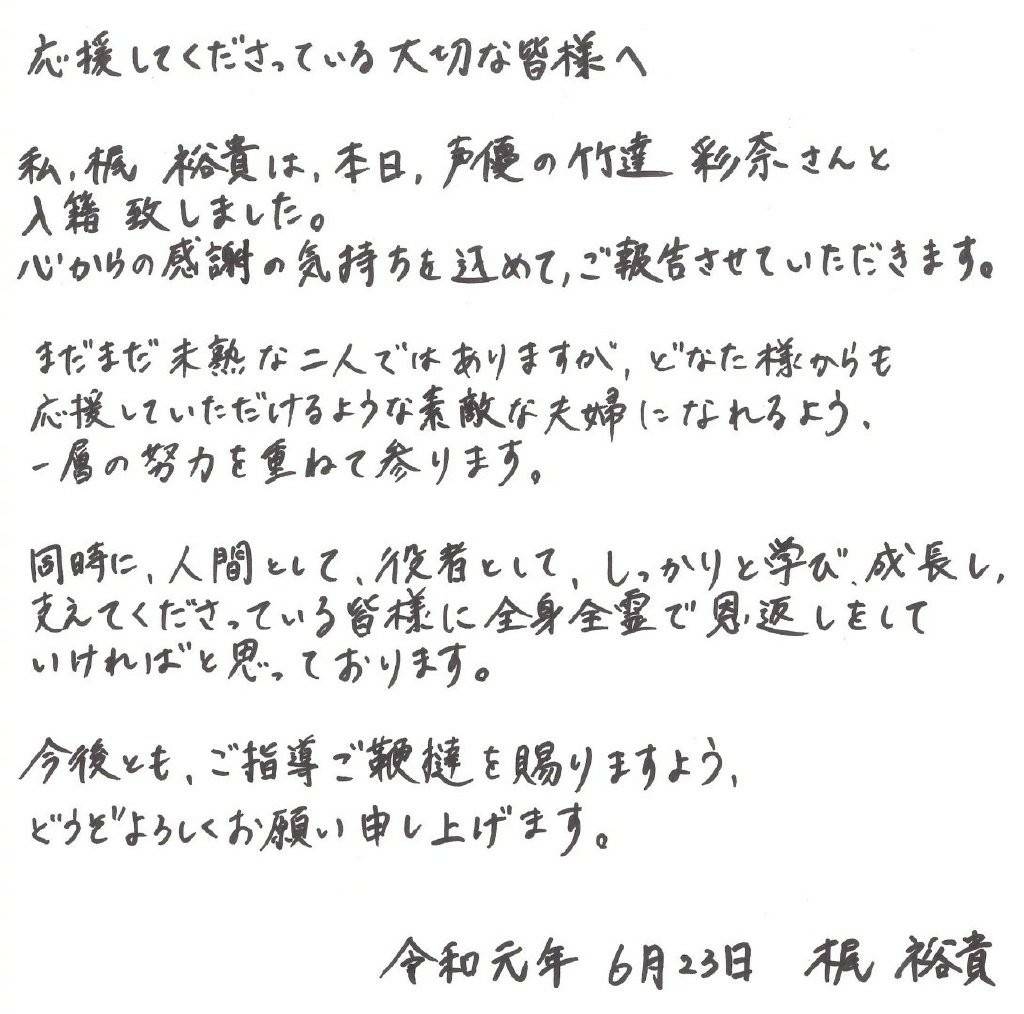 応援してくださっている大切な皆様へ
私、梶 裕貴は、本日、声優の竹達 彩奈さんと
入籍 致しました。
心からの感謝の気持ちを込めて、ご報告させていただきます。
まだまだ未熟な二人ではありますが、どなた様からも
応援していただけるような素敵な夫婦になれるよう、
一層の努力を重ねて参ります。
同時に、人間として、役者として、しっかりと学び、成長し、
支えてくださっている皆様に全身全霊で恩返しをして
いければと思っております。
今後とも、ご指導ご鞭撻を賜りますよう、
どうぞよろしくお願い申し上げます。
令和元年 6月23日 梶 裕貴